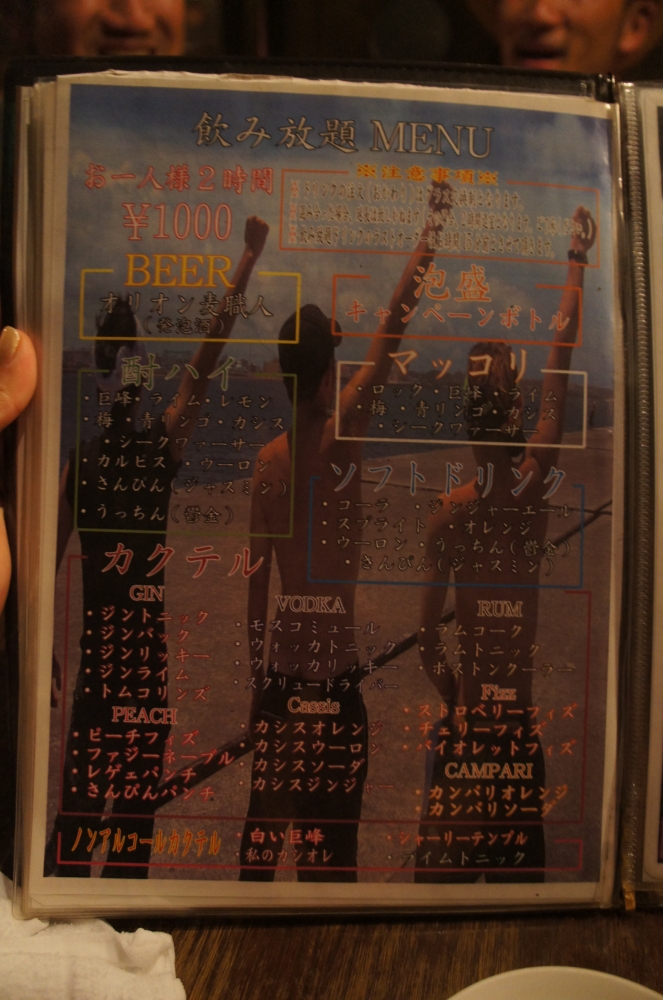 飲み放題 MENU
お一人様2時間
¥1000
※注意事項※
BEER
オリオン麦職人
(発泡酒)
泡盛
キャンペーンボトル
酎ハイ
・巨峰・ライム・レモン
・梅・青リンゴ・カシス
・シークワァーサー
・カルピス ・ウーロン
・さんぴん(ジャスミン)
・うっちん(鬱金)
マッコリ
・ロック・巨峰・ライム
・梅・青リンゴ・カシス
・シークワァーサー
ソフトドリンク
・コーラ ・ジンジャーエール
・スプライト ・オレンジ
・ウーロン・うっちん(鬱金)
・さんぴん(ジャスミン)
カクテル
GIN
・ジントニック
・ジンバック
・ジンリッキー
・ジンライム
・トムコリンズ
PEACH
・ピーチフィズ
・ファジーネーブル
・レゲェパンチ
・さんぴんパンチ
VODKA
・モスコミュール
・ウォッカトニック
・ウォッカリッキー
・スクリュードライバー
Cassis
・カシスオレンジ
・カシスウーロン
・カシスソーダ
・カシスジンジャー
RUM
・ラムコーク
・ラムトニック
・ボストンクーラー
Fizz
・ストロベリーフィズ
・チェリーフィズ
・バイオレットフィズ
CAMPARI
・カンパリオレンジ
・カンパリソーダ
ノンアルコールカクテル
・白い巨峰
・私のカシオレ
・シャーリーテンプル
・ライムトニック